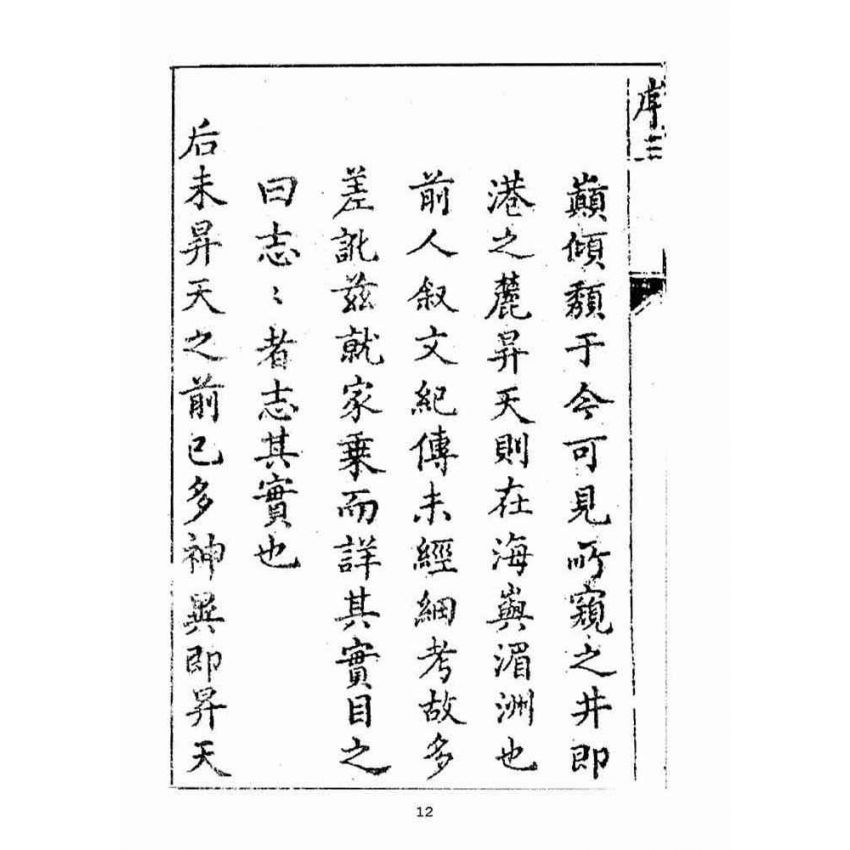 序三
巔傾頽于今可見所窺之井即
港之麓昇天則在海嶼湄洲也
前人叙文紀傳未經細考故多
差訛茲就家乗而詳其實目之
曰志〻者志其實也
后未昇天之前已多神異即昇天
12